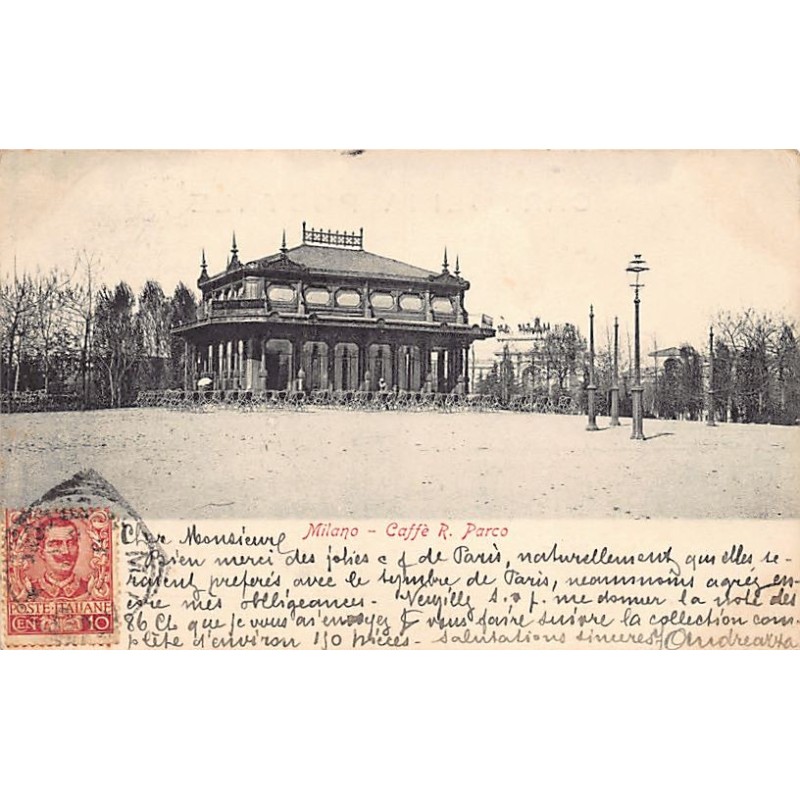 Milano - Caffè R. Parco
Cher Monsieur
Bien merci des jolies c de Paris, naturellement qu'elles se-
raient preferés avec le tymbre de Paris, neammoins agréz en-
core mes obligeances. Neuyilly s.v.p. me donner la note des
86 Cts que je vous ai envoyez & vous faire suivre la collection com-
plète d'environ 150 pièces - salutations sincères
POSTE ITALIANE
CEN 10